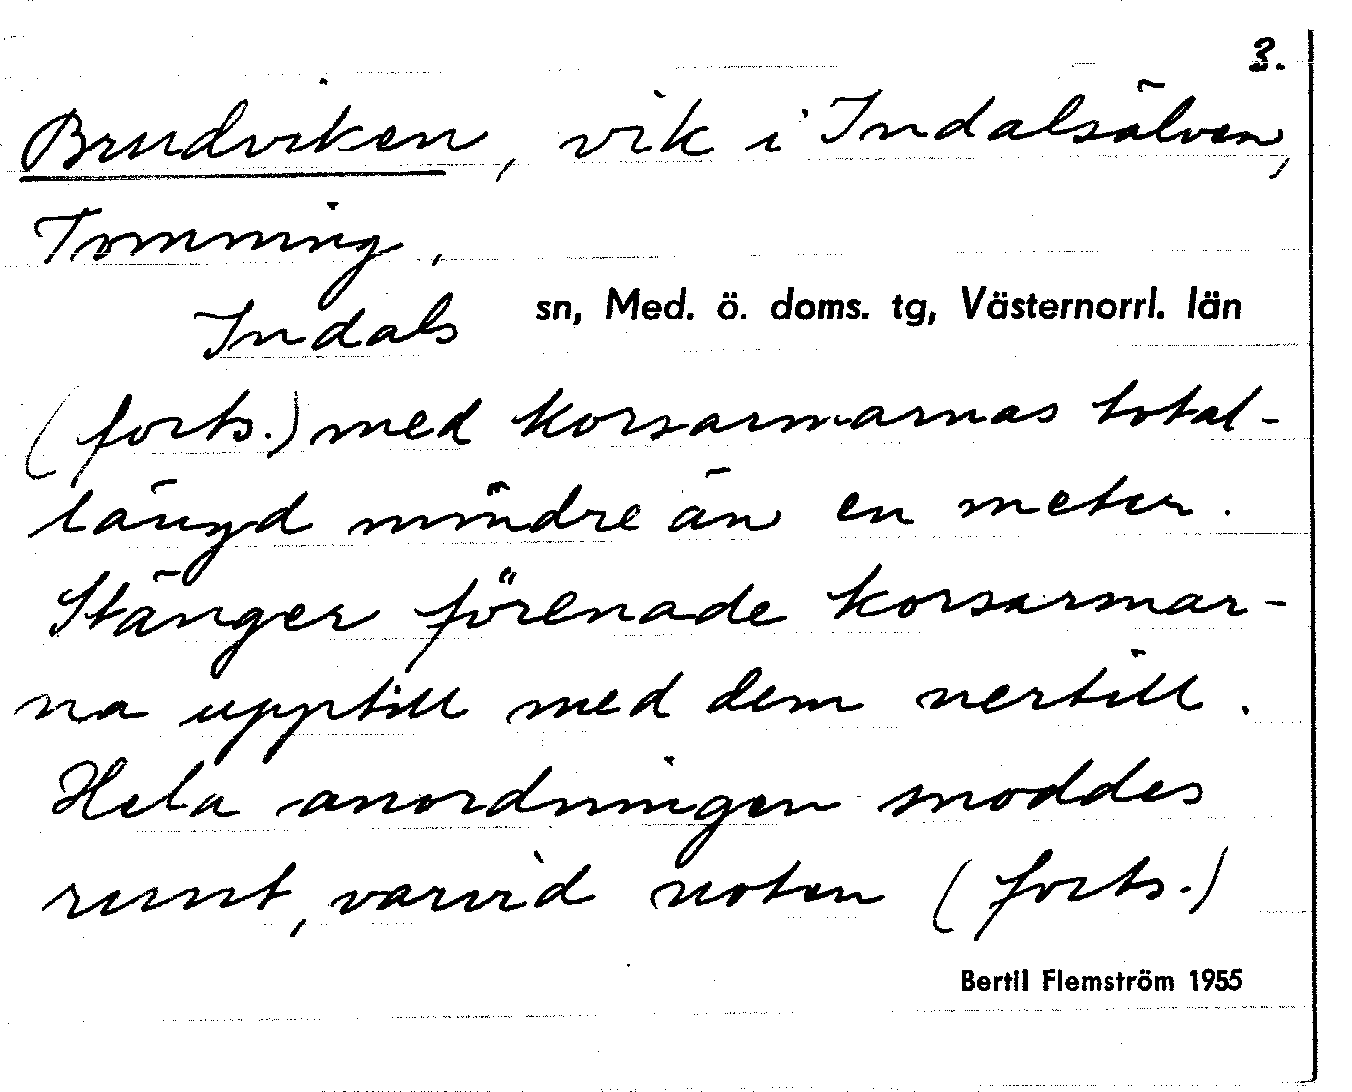 3.
Brudviken, vik i Indalsälven,
Tomming,
Indals sn, Med. ö. doms. tg, Västernorrl. län
(forts.) med korsarmarnas total-
längd mindre än en meter.
Stänger förenade korsarmar-
na upptill med dem nertill.
Hela anordningen snoddes
runt, varvid noten (forts.)
Bertil Flemström 1955